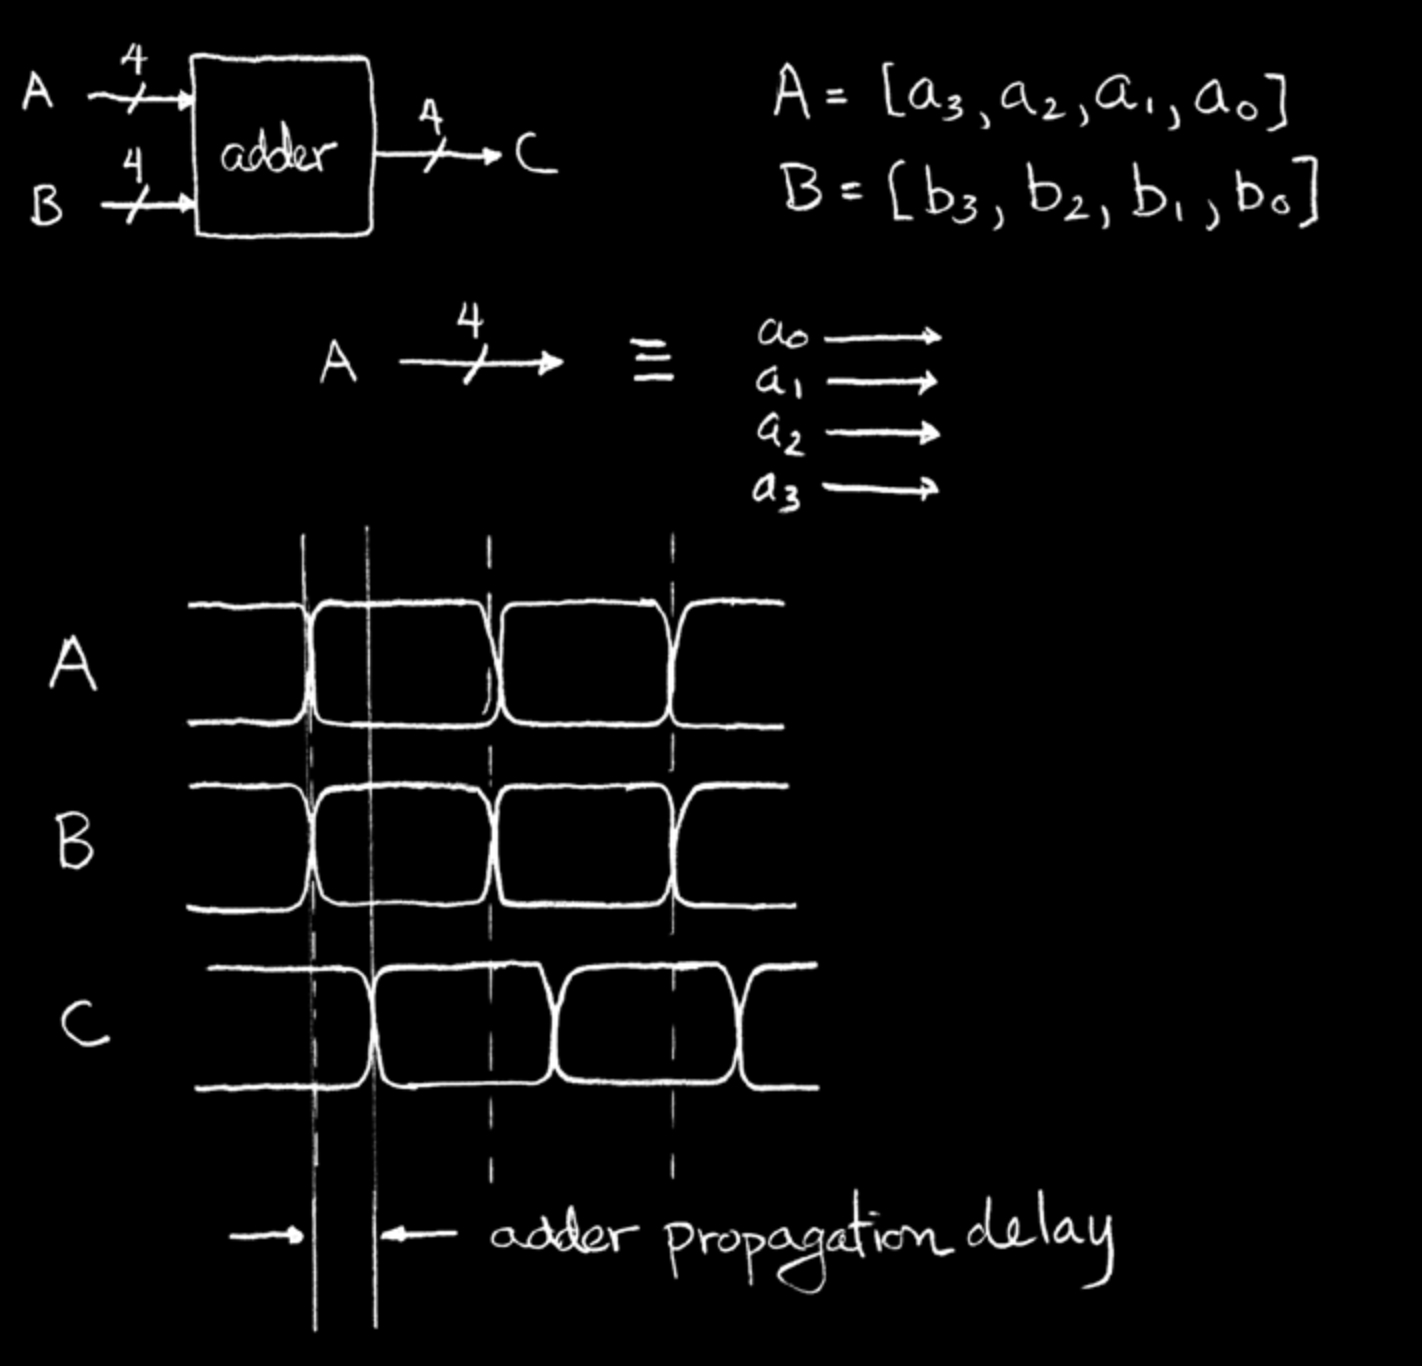 A 4
adder
4 C
B 4
A = [a₃, a₂, a₁, a₀]
B = [b₃, b₂, b₁, b₀]
A 4 ≡
a₀
a₁
a₂
a₃
A
B
C
adder propagation delay